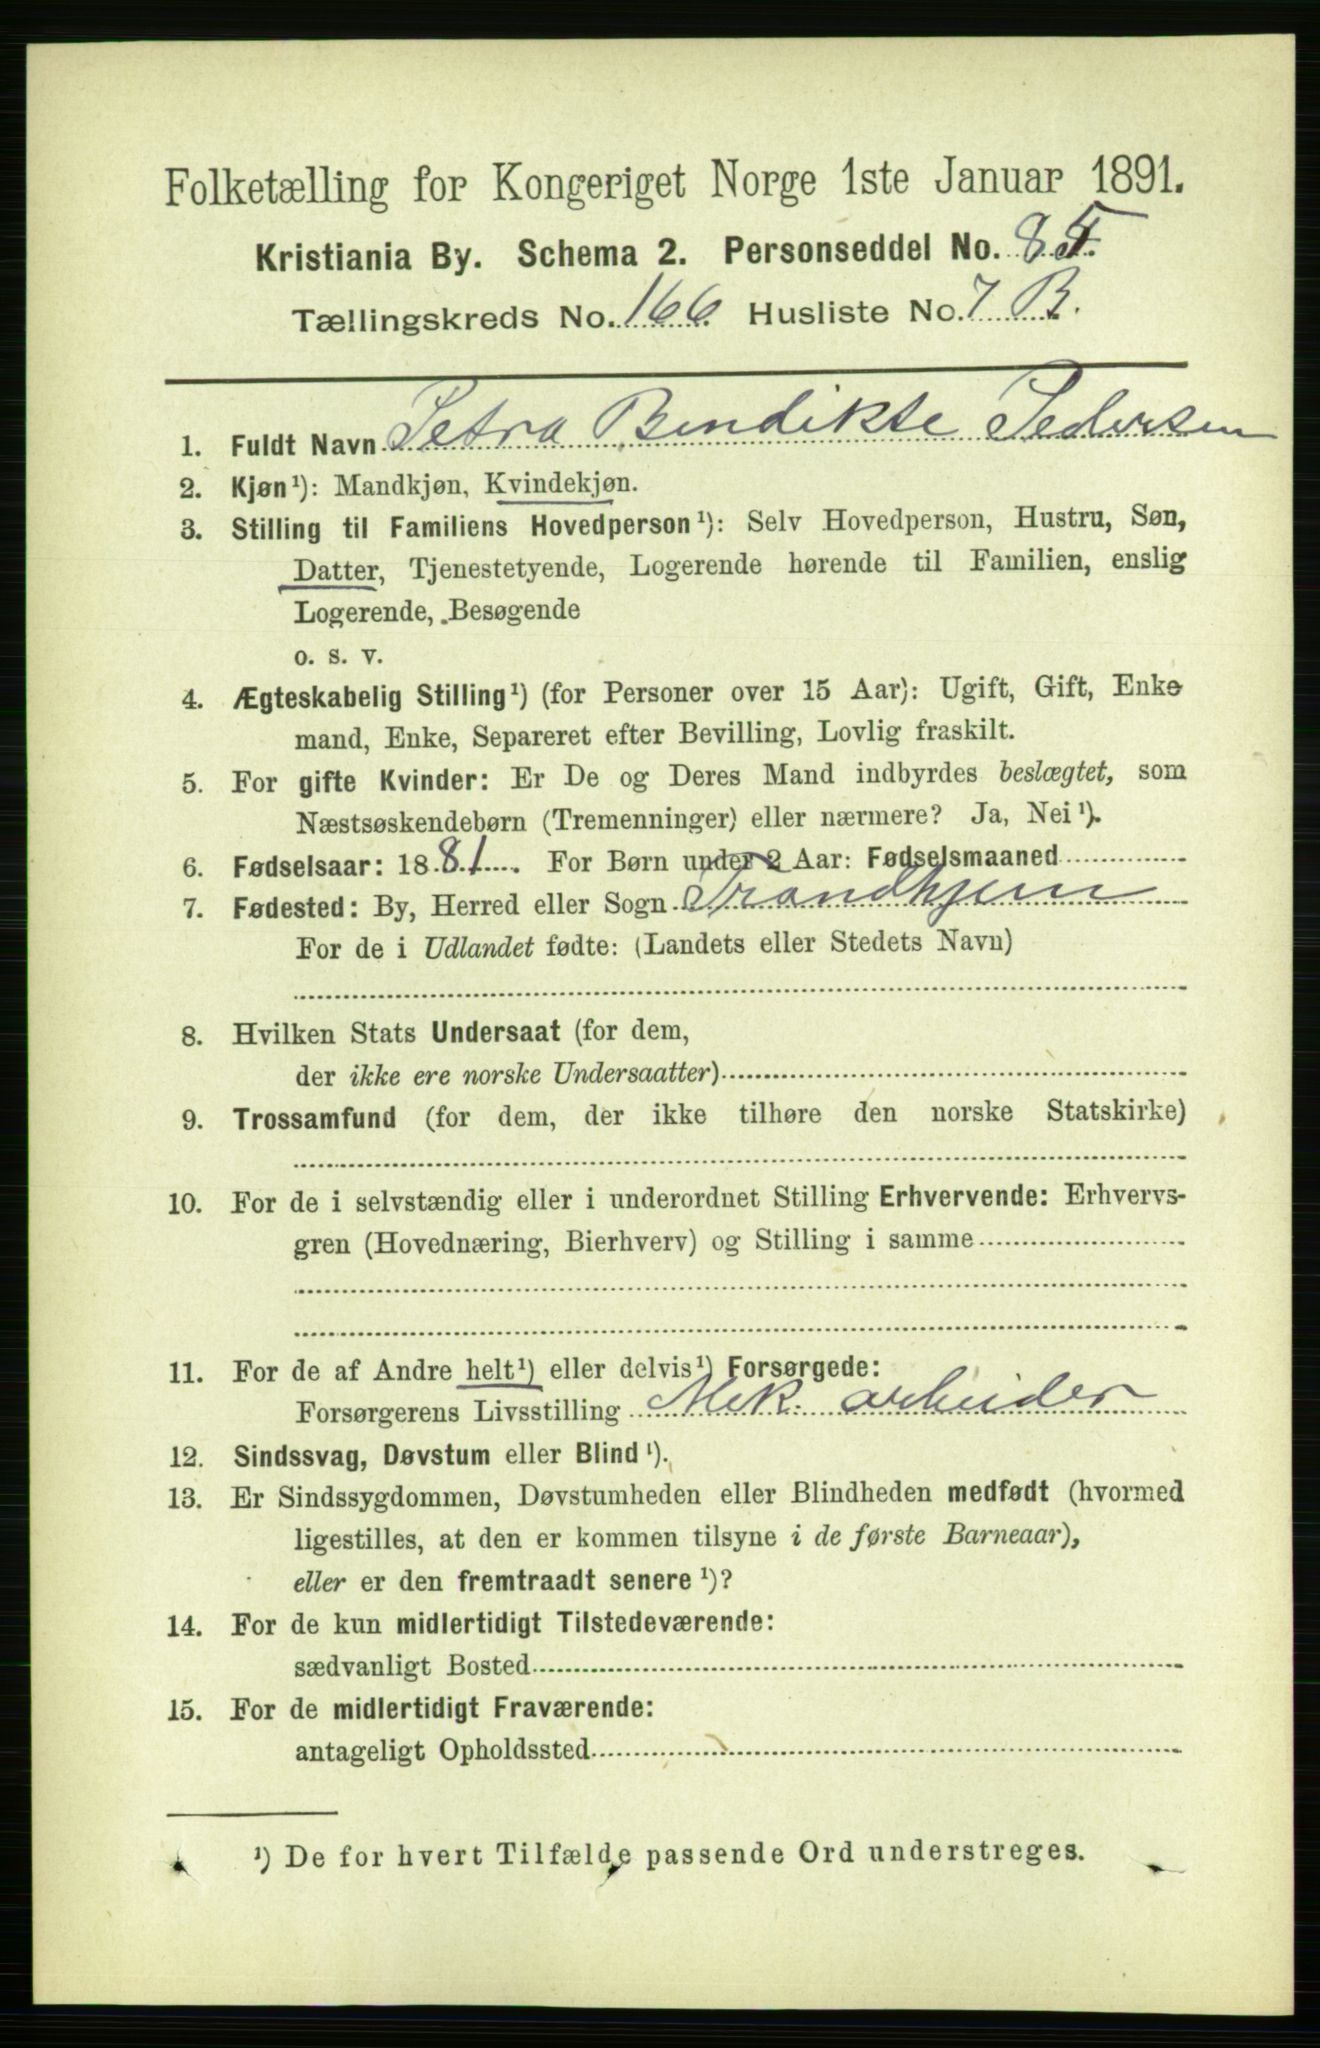 Folketælling for Kongeriget Norge 1ste Januar 1891.
Kristiania By. Schema 2. Personseddel No. 85.
Tællingskreds No. 166. Husliste No. 7 B.
1. Fuldt Navn Petra Bendikte Pedersen
2. Kjøn¹): Mandkjøn, Kvindekjøn.
3. Stilling til Familiens Hovedperson¹): Selv Hovedperson, Hustru, Søn,
Datter, Tjenestetyende, Logerende hørende til Familien, enslig
Logerende, Besøgende
o. s. v.
4. Ægteskabelig Stilling¹) (for Personer over 15 Aar): Ugift, Gift, Enke-
mand, Enke, Separeret efter Bevilling, Lovlig fraskilt.
5. For gifte Kvinder: Er De og Deres Mand indbyrdes beslægtet, som
Næstsøskendebørn (Tremenninger) eller nærmere? Ja, Nei¹).
6. Fødselsaar: 1881. For Børn under 2 Aar: Fødselsmaaned
7. Fødested: By, Herred eller Sogn Trondhjem
For de i Udlandet fødte: (Landets eller Stedets Navn)
8. Hvilken Stats Undersaat (for dem,
der ikke ere norske Undersaatter)
9. Trossamfund (for dem, der ikke tilhøre den norske Statskirke)
10. For de i selvstændig eller i underordnet Stilling Erhvervende: Erhvervs-
gren (Hovednæring, Bierhverv) og Stilling i samme
11. For de af Andre helt¹) eller delvis¹) Forsørgede:
Forsørgerens Livsstilling Mek. arbeider
12. Sindssvag, Døvstum eller Blind¹).
13. Er Sindssygdommen, Døvstumheden eller Blindheden medfødt (hvormed
ligestilles, at den er kommen tilsyne i de første Barneaar),
eller er den fremtraadt senere¹)?
14. For de kun midlertidigt Tilstedeværende:
sædvanligt Bosted
15. For de midlertidigt Fraværende:
antageligt Opholdssted
¹) De for hvert Tilfælde passende Ord understreges.